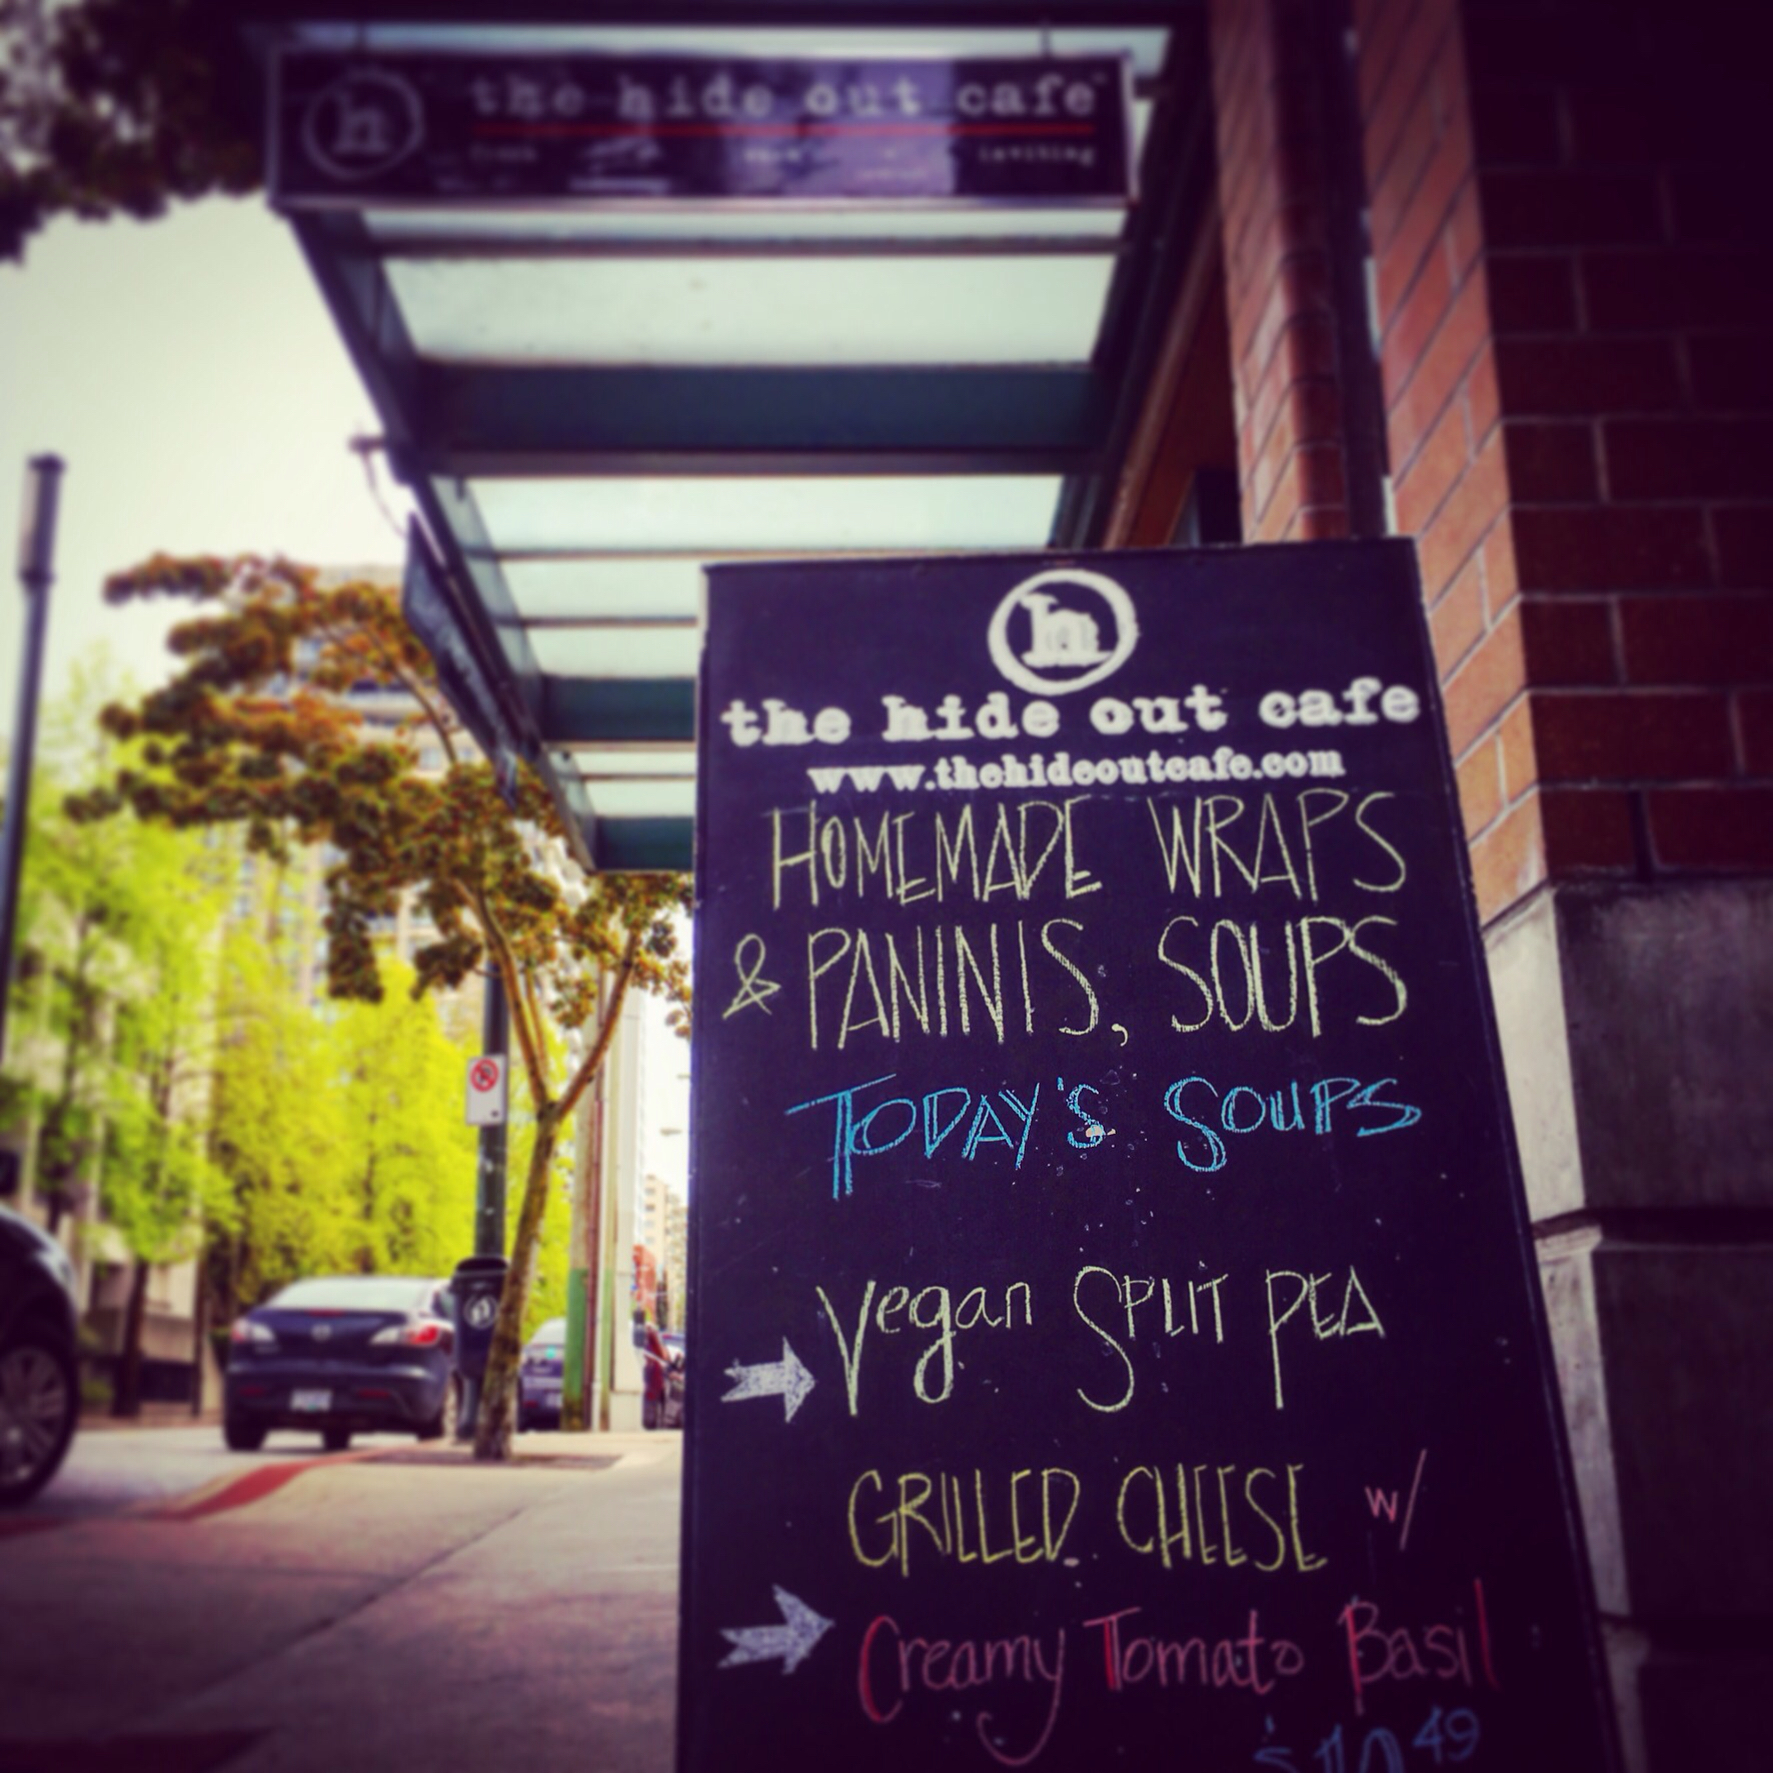 h
the hide out cafe
inviting
h
the hide out cafe
www.thehideoutcafe.com
HOMEMADE WRAPS
& PANINIS, SOUPS
TODAY'S SOUPS
Vegan SPLIT PEA
GRILLED CHEESE w/
Creamy Tomato Basil
$10.49